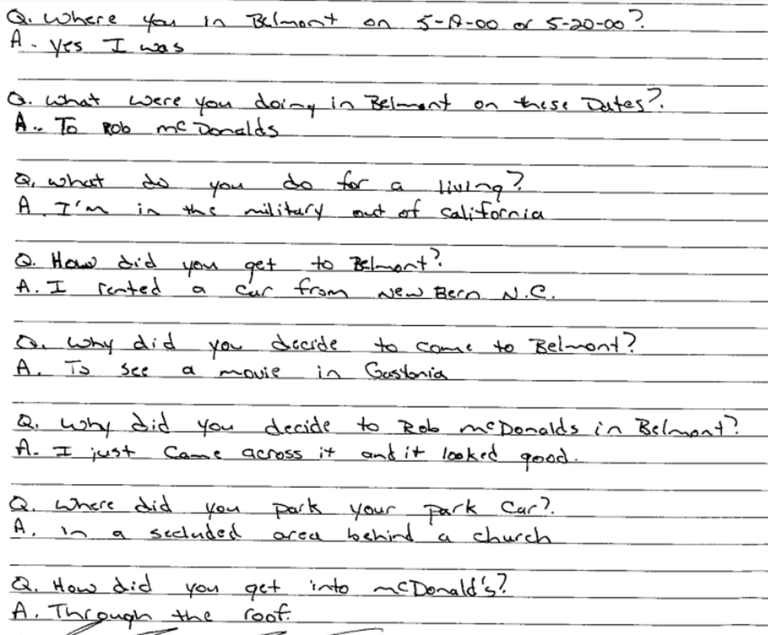 Q. Where you in Belmont on 5-19-00 or 5-20-00?
A. yes I was
Q. What were you doing in Belmont on these Dates?
A. To Rob McDonalds
Q. What do you do for a living?
A. I'm in the military out of California
Q. How did you get to Belmont?
A. I rented a car from New Bern N.C.
Q. Why did you decide to come to Belmont?
A. To see a movie in Gastonia
Q. Why did you decide to Rob McDonalds in Belmont?
A. I just Came across it and it looked good.
Q. Where did you park your park Car?
A. in a secluded area behind a church
Q. How did you get into McDonald's?
A. Through the roof.